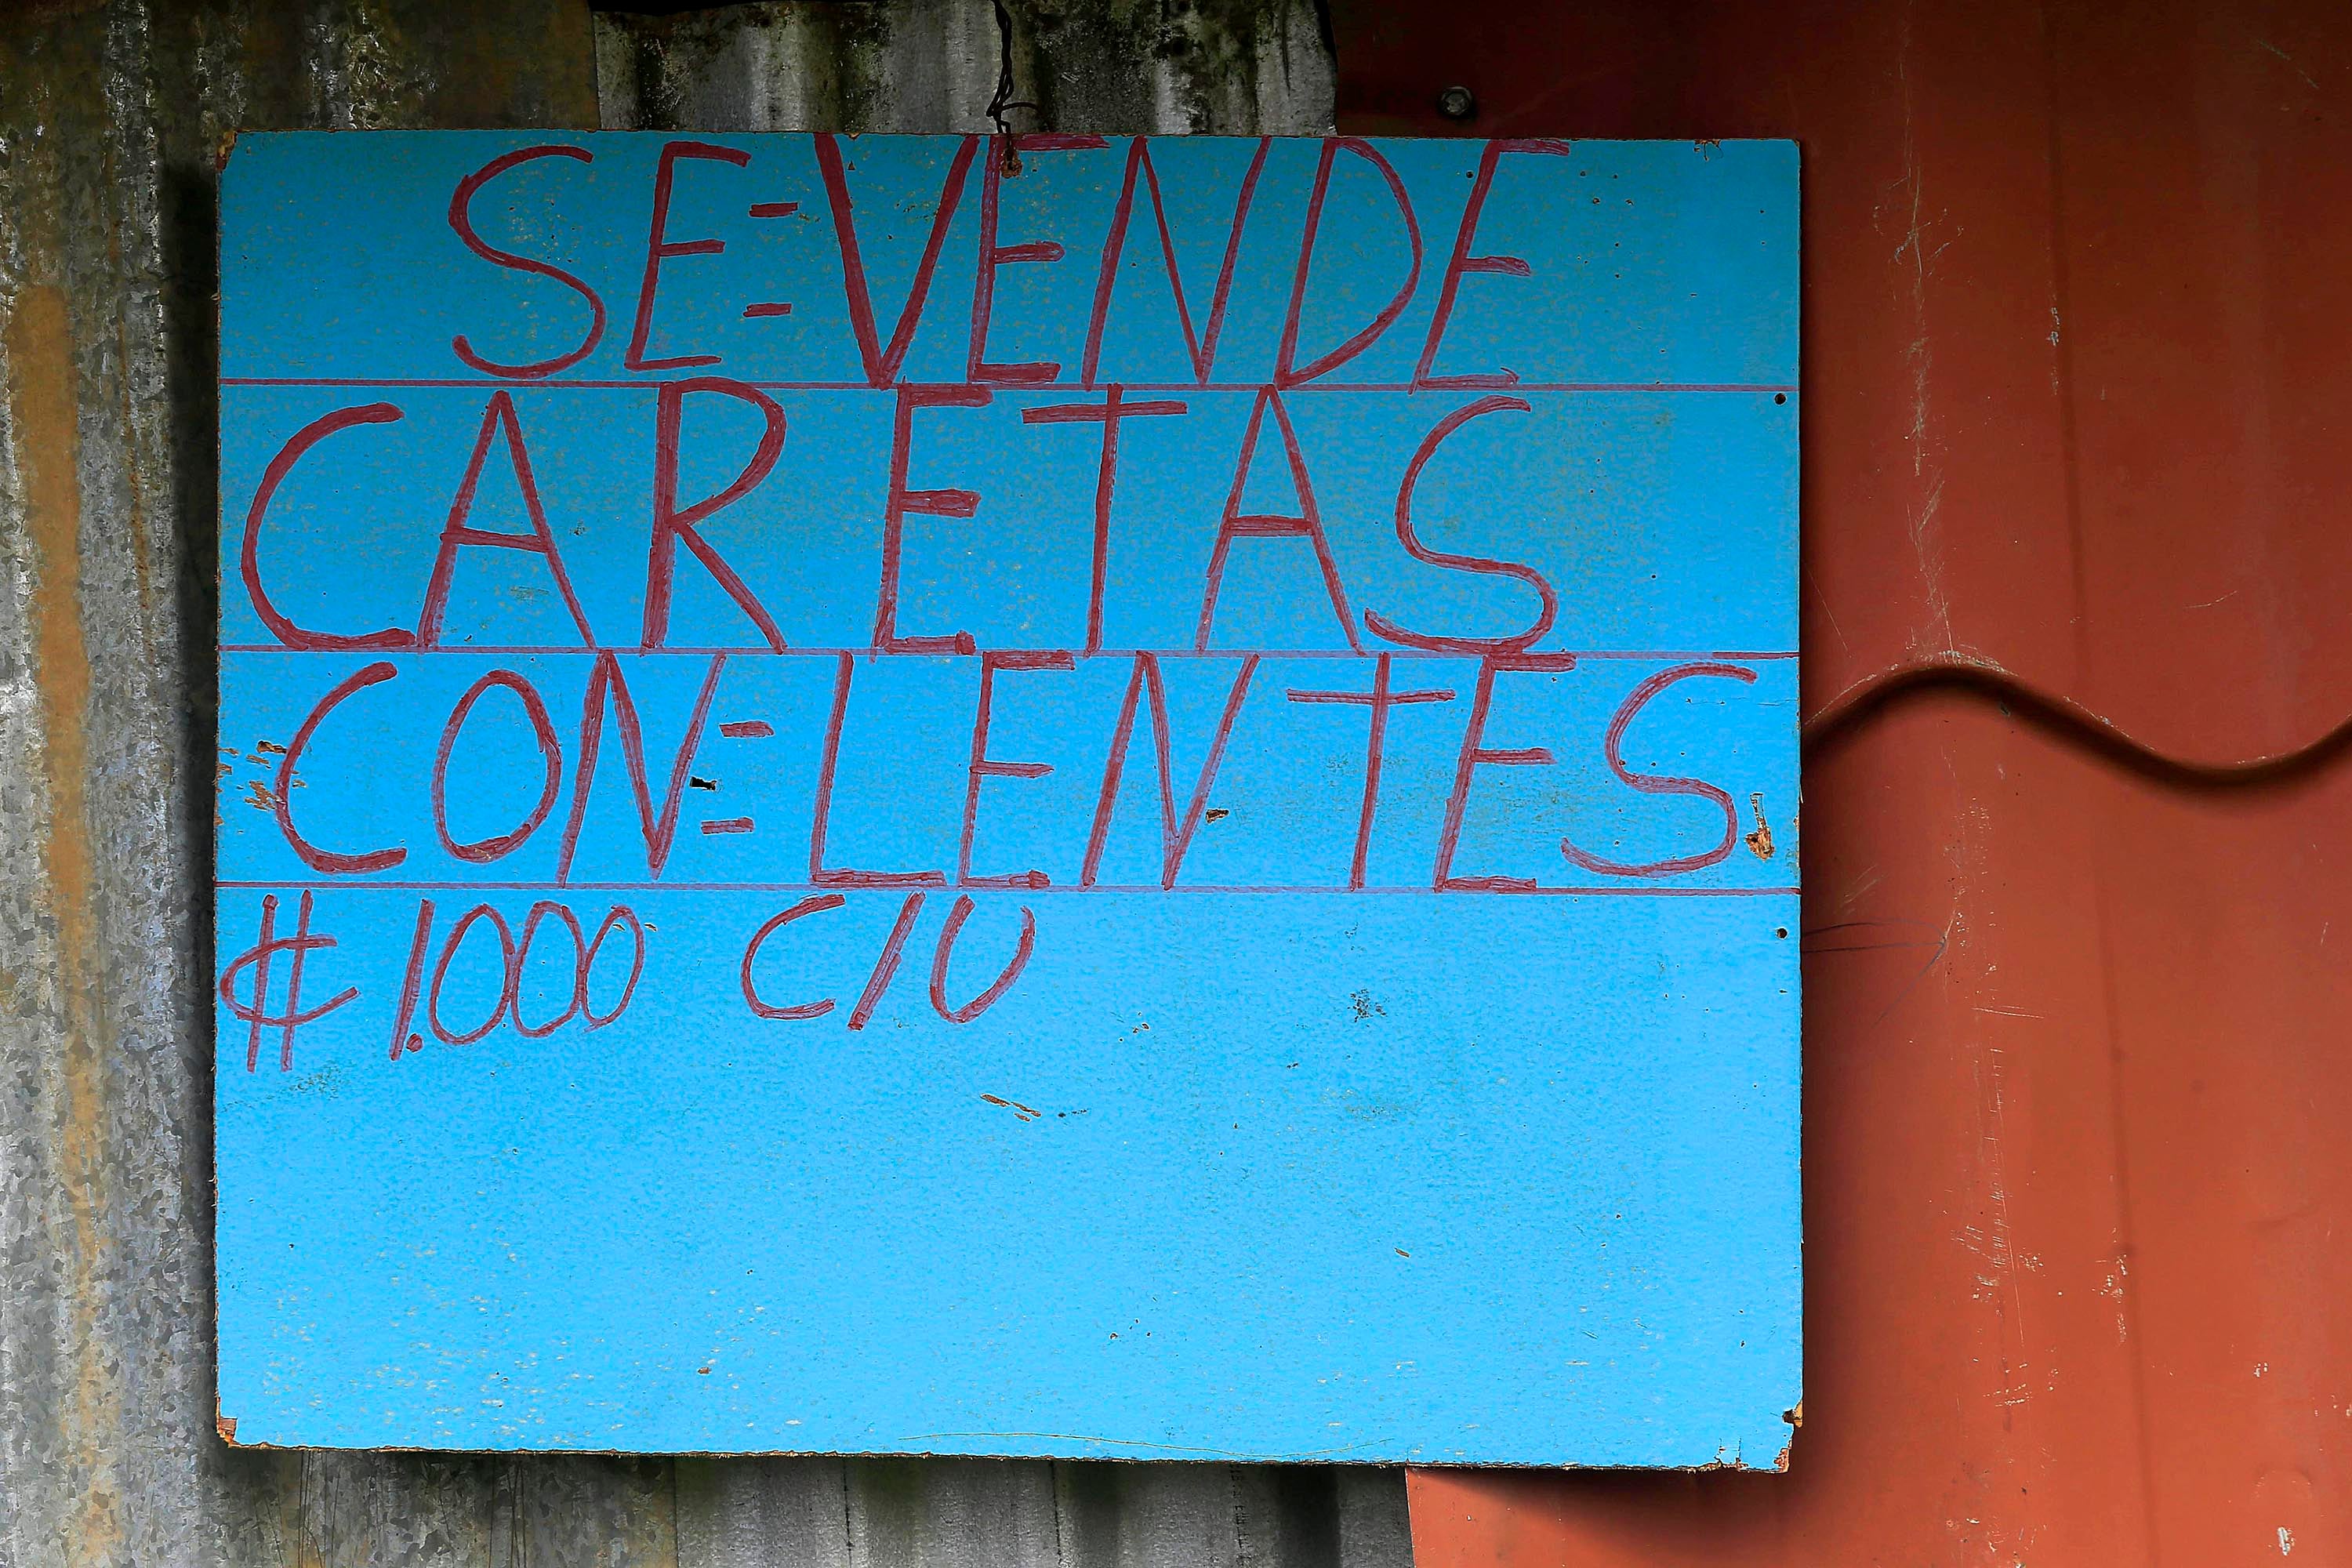 SE=VENDE
CARETAS
CON=LENTES
₡ 1.000 C/U